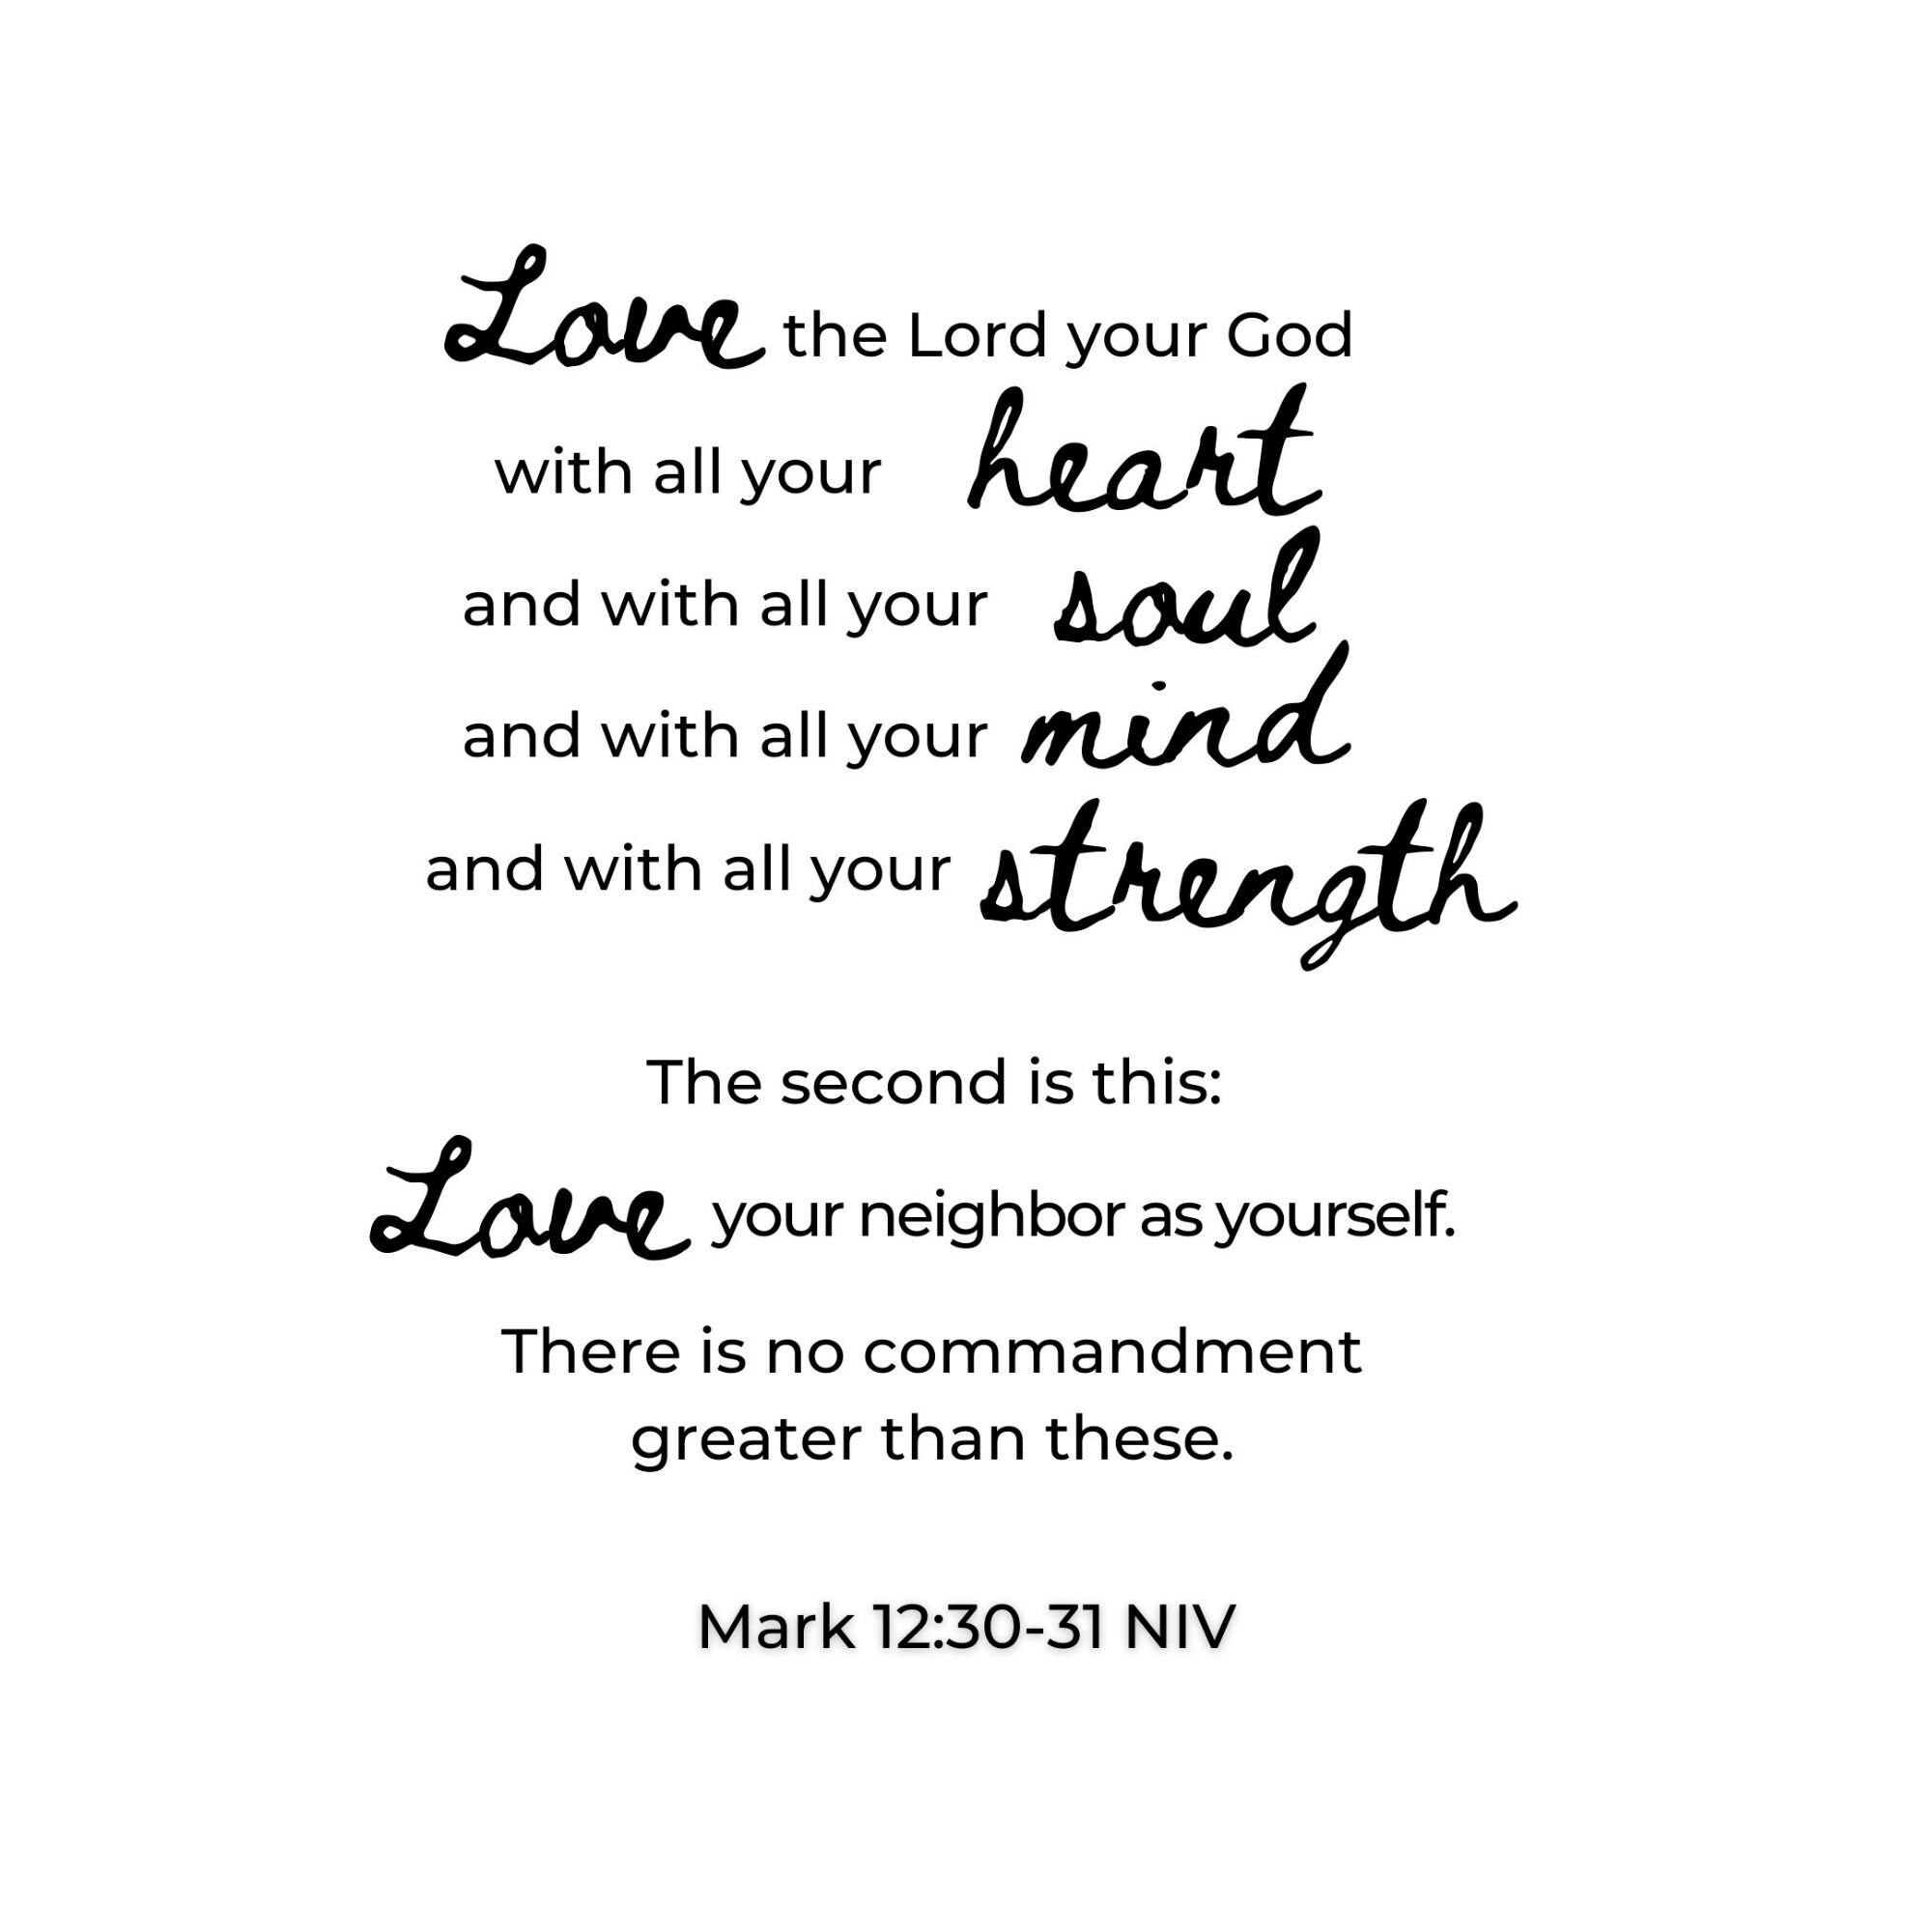 Love the Lord your God
with all your heart
and with all your soul
and with all your mind
and with all your strength
The second is this:
Love your neighbor as yourself.
There is no commandment
greater than these.
Mark 12:30-31 NIV